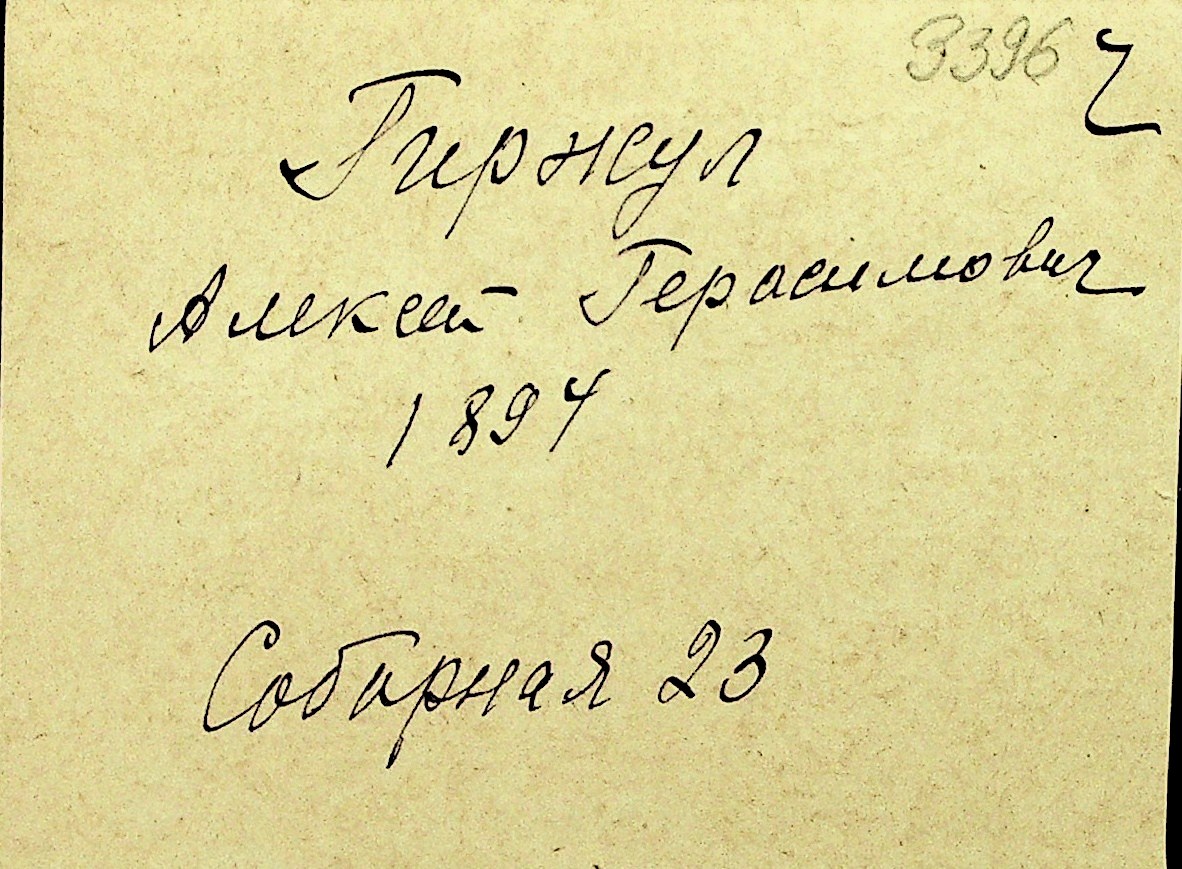 3396 ч
Гиржул
Алексей Герасимович
1894
Собирная 23